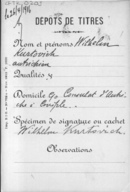 DÉPÔTS DE TITRES
Nom et prénoms Wilhelm
Kurkovich
autrichien
Qualités
Domicile Consulat d'Autri-
che
Spécimen de signature ou cachet
Wilhelm Kurkovich
Observations